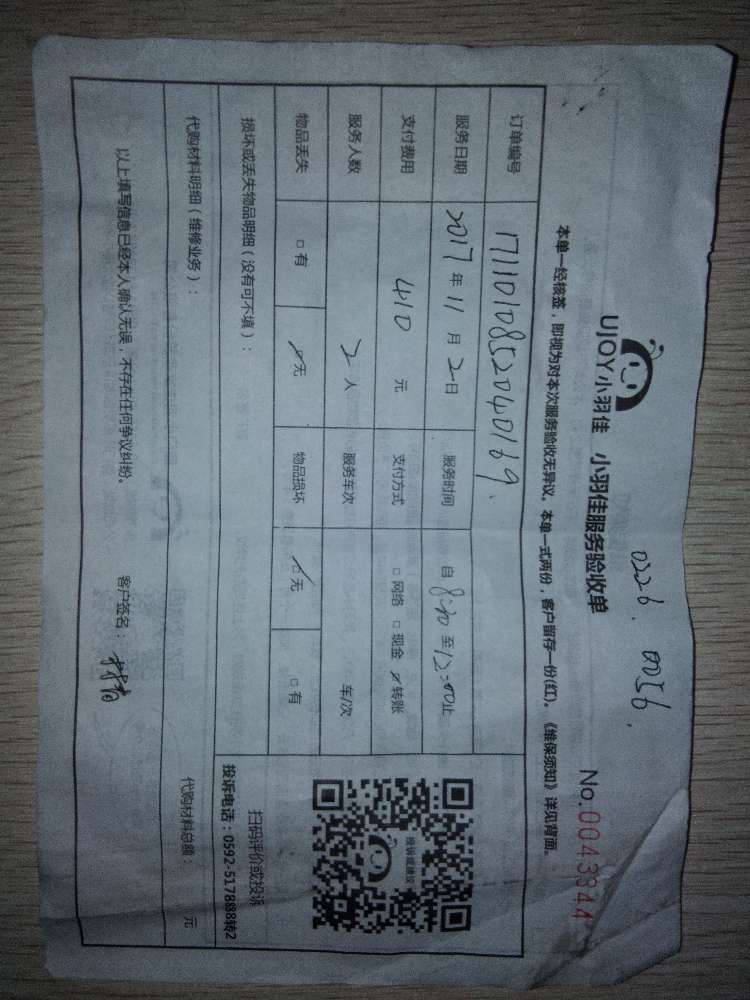 0226. 0056.
UJOY小羽佳 小羽佳服务验收单 No.0043344
本单一经核签，即视为对本次服务验收无异议。本单一式两份，客户留存一份(红)。《维保须知》详见背面。
订单编号 1711010852040169.
服务日期 2017年11月2日 服务时间 自8:30至12:00止
支付费用 410元 支付方式 □网络 □现金 ☑转账
服务人数 2人 服务车次 车/次
物品丢失 □有 ☑无 物品损坏 ☑无 □有
损坏或丢失物品明细（没有可不填）：
投诉或建议
扫码评价或投诉
投诉电话：0592-5178888转2
代购材料明细（维修业务）： 代购材料总额： 元
以上填写信息已经本人确认无误，不存在任何争议纠纷。 客户签名：